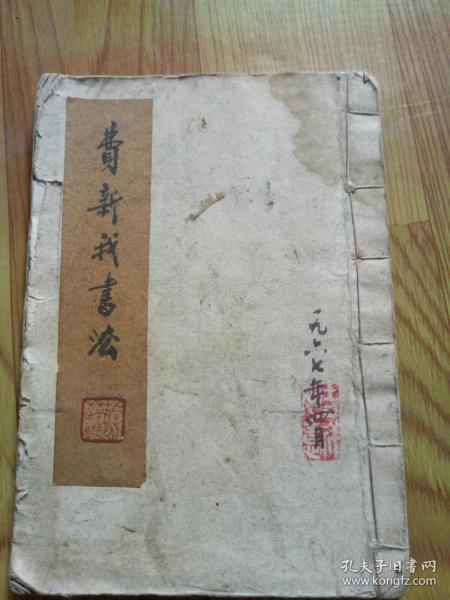 費新我書法
一九六七年四月
孔夫子旧书网
www.kongfz.com